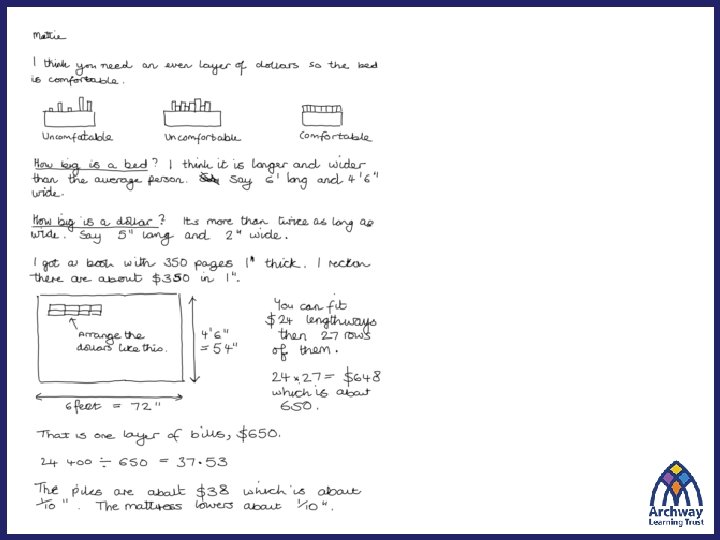 Mattie
I think you need an even layer of dollars so the bed
is comfortable.
Uncomfatable
Uncomfortable
Comfortable
How big is a bed? I think it is longer and wider
than the average person. Say 6' long and 4'6"
wide.
How big is a dollar? Its more than twice as long as
wide. Say 5" long and 2" wide.
I got a book with 350 pages 1" thick. I reckon
there are about $350 in 1".
Arrange the
dollars like this.
4'6"
= 54"
6 feet = 72"
You can fit
$24 lengthways
then 27 rows
of them.
24 × 27 = $648
which is about
650.
That is one layer of bills, $650.
24 400 ÷ 650 = 37.53
The piles are about $38 which is about
1/10". The mattress lowers about 1/10".
Archway
Learning Trust